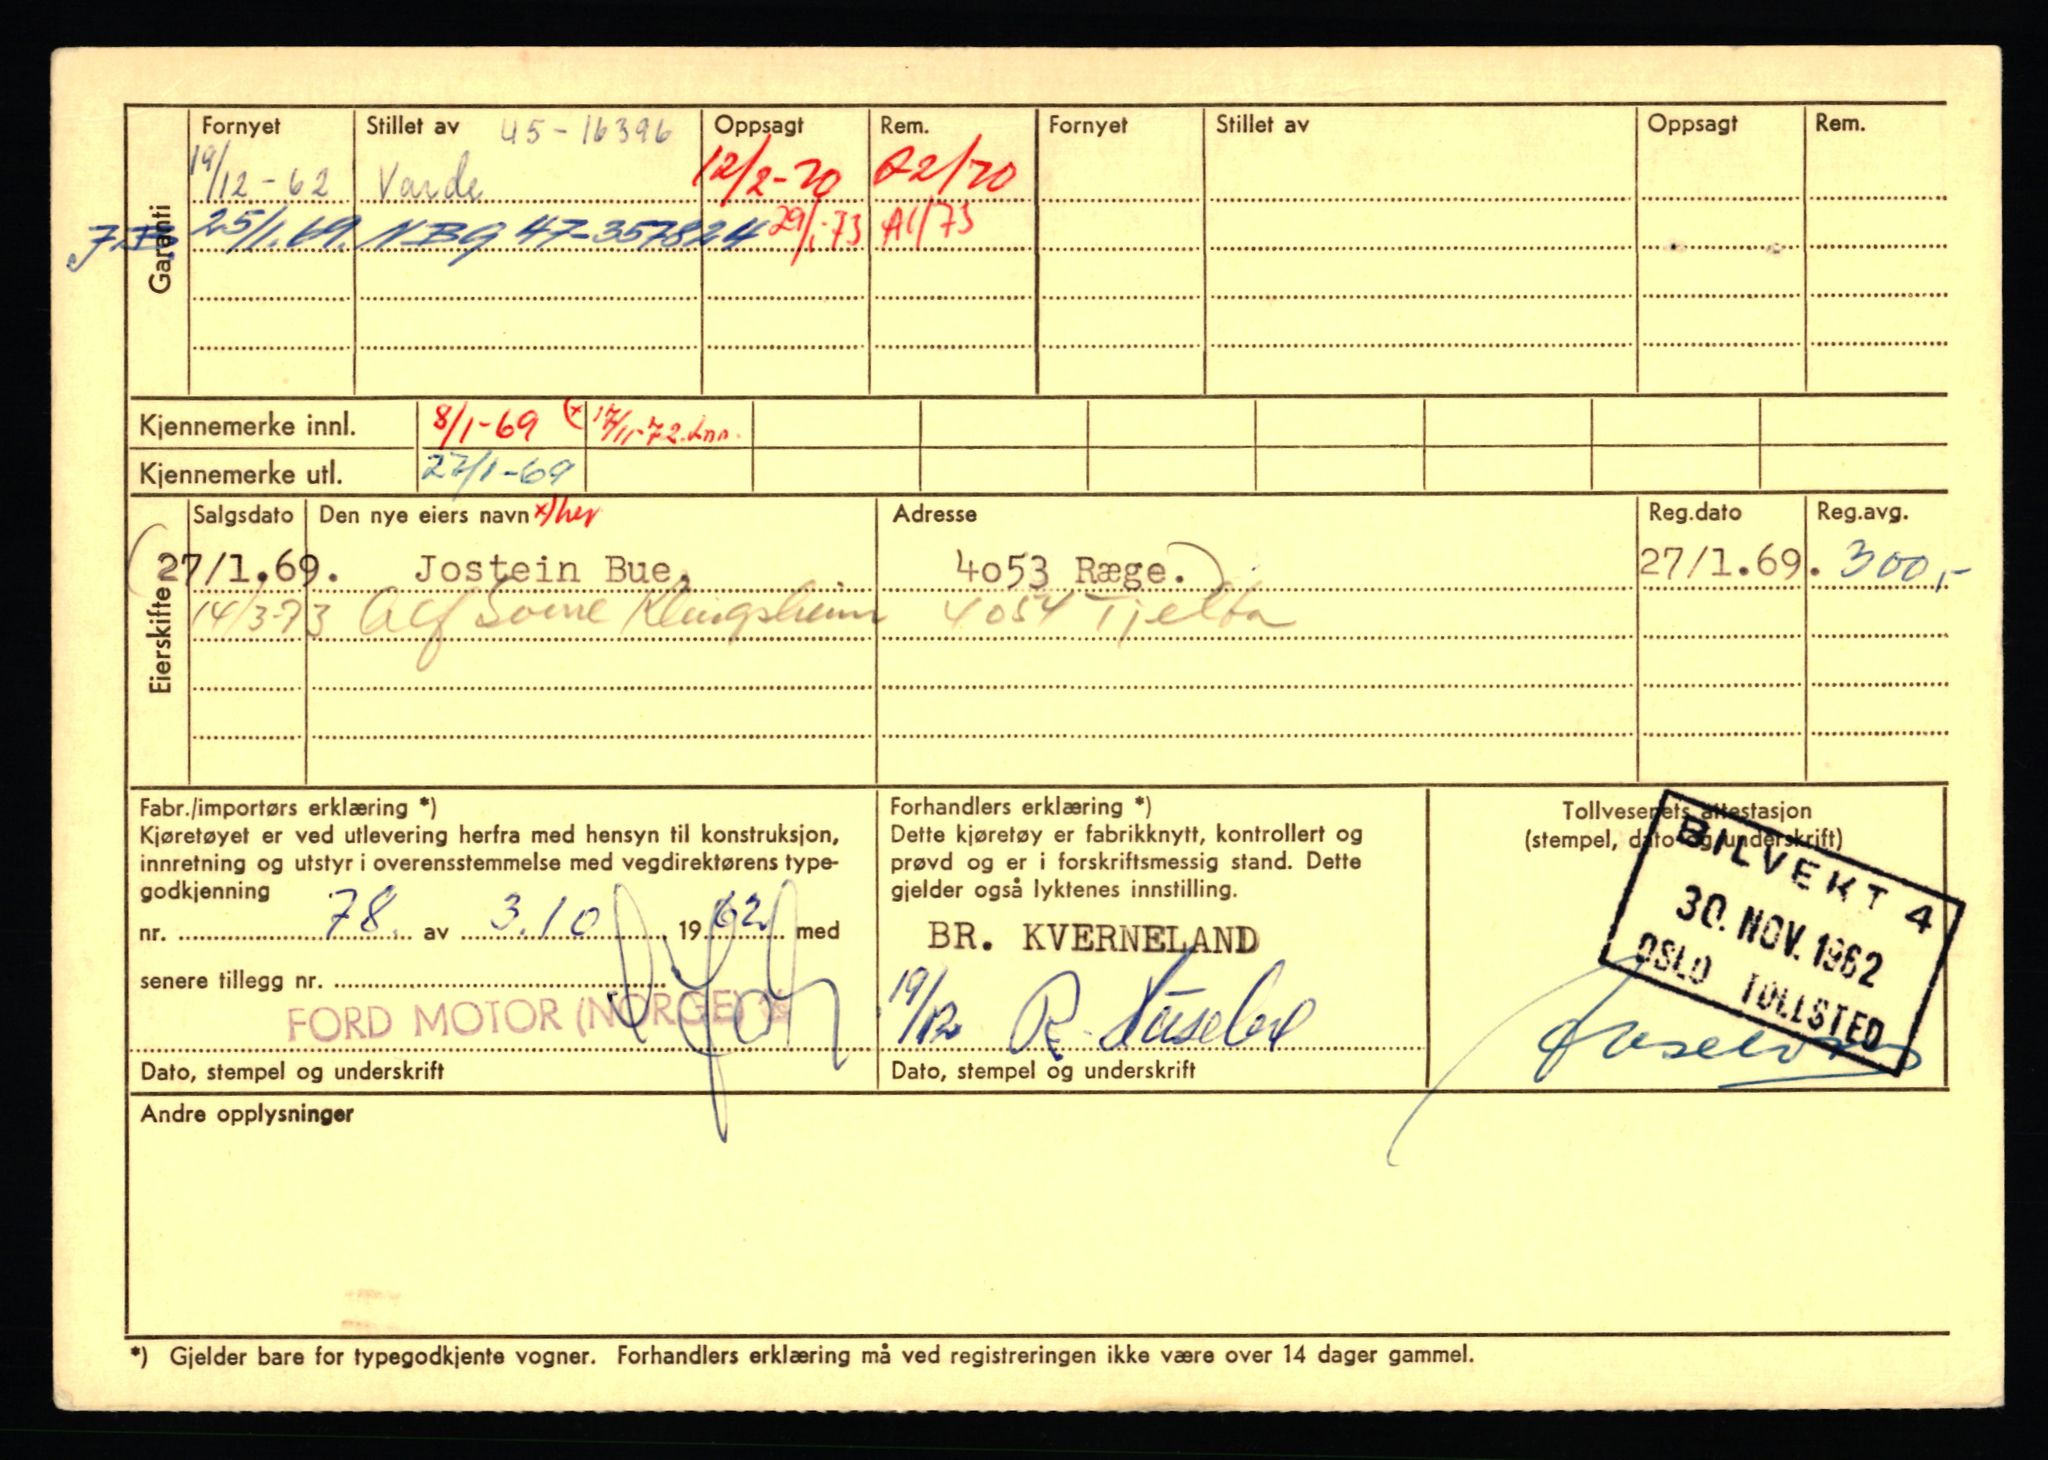 Garanti
Fornyet Stillet av 45-16396 Oppsagt Rem. Fornyet Stillet av Oppsagt Rem.
19/12-62 Varde 12/2-70 A2/70
25/1.69. NBG 47-357824 29/1-73 A1/73
Kjennemerke innl. 8/1-69 (x 17/11-72.
Kjennemerke utl. 27/1-69
Eierskifte
Salgsdato Den nye eiers navn x) her Adresse Reg.dato Reg.avg.
(27/1.69. Jostein Bue. 4053 Ræge.) 27/1.69. 300,-
14/3-73 Alf Klingsheim 4054 Tjelta
Fabr./importørs erklæring *)
Kjøretøyet er ved utlevering herfra med hensyn til konstruksjon,
innretning og utstyr i overensstemmelse med vegdirektørens type-
godkjenning
nr. 78. av 3.10 1962 med
senere tillegg nr.
FORD MOTOR (NORGE) A/S
Dato, stempel og underskrift
Forhandlers erklæring *)
Dette kjøretøy er fabrikknytt, kontrollert og
prøvd og er i forskriftsmessig stand. Dette
gjelder også lyktenes innstilling.
BR. KVERNELAND
19/12 R.
Dato, stempel og underskrift
Tollvesenets attestasjon
(stempel, dato og underskrift)
BILVEKT 4
30. NOV. 1962
OSLO TOLLSTED
Andre opplysninger
*) Gjelder bare for typegodkjente vogner. Forhandlers erklæring må ved registreringen ikke være over 14 dager gammel.